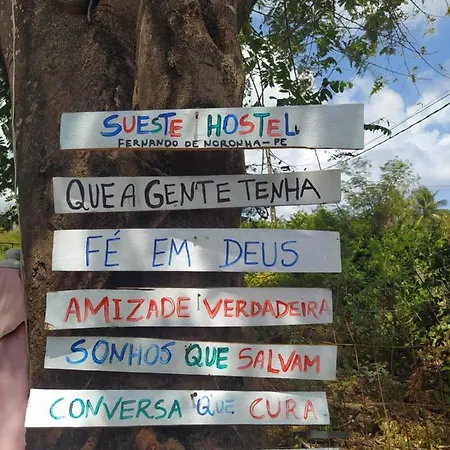 SUESTE HOSTEL
FERNANDO DE NORONHA-PE
QUE A GENTE TENHA
FÉ EM DEUS
AMIZADE VERDADEIRA
SONHOS QUE SALVAM
CONVERSA QUE CURA